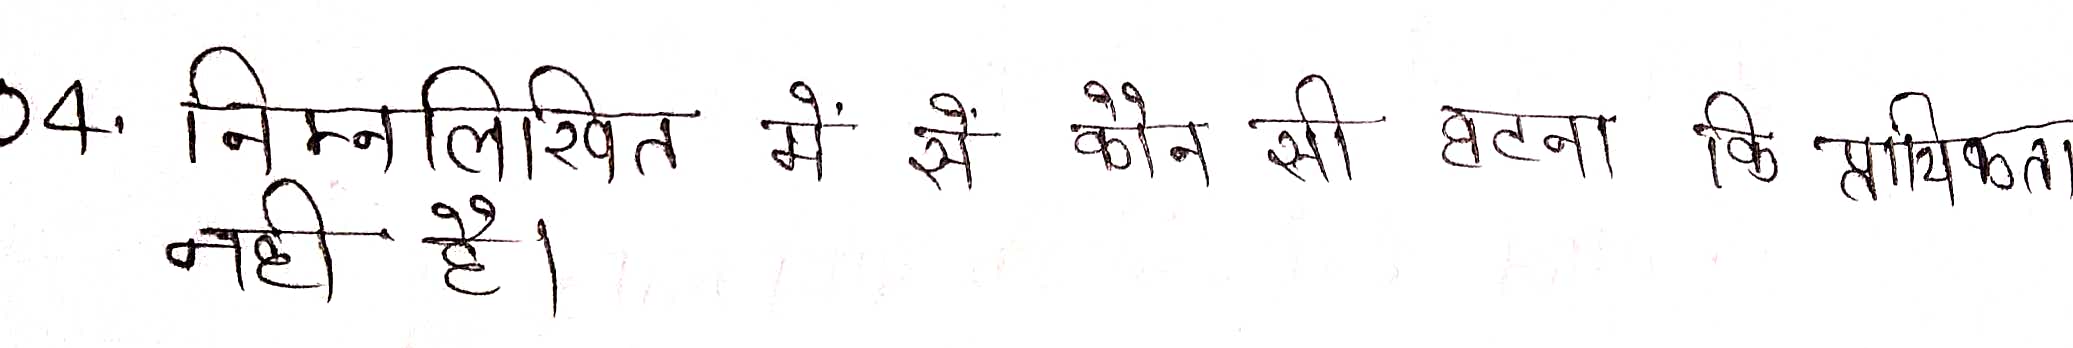 04. निम्नलिखित में सें कौन सी घटना कि प्रायिकता
नही है।